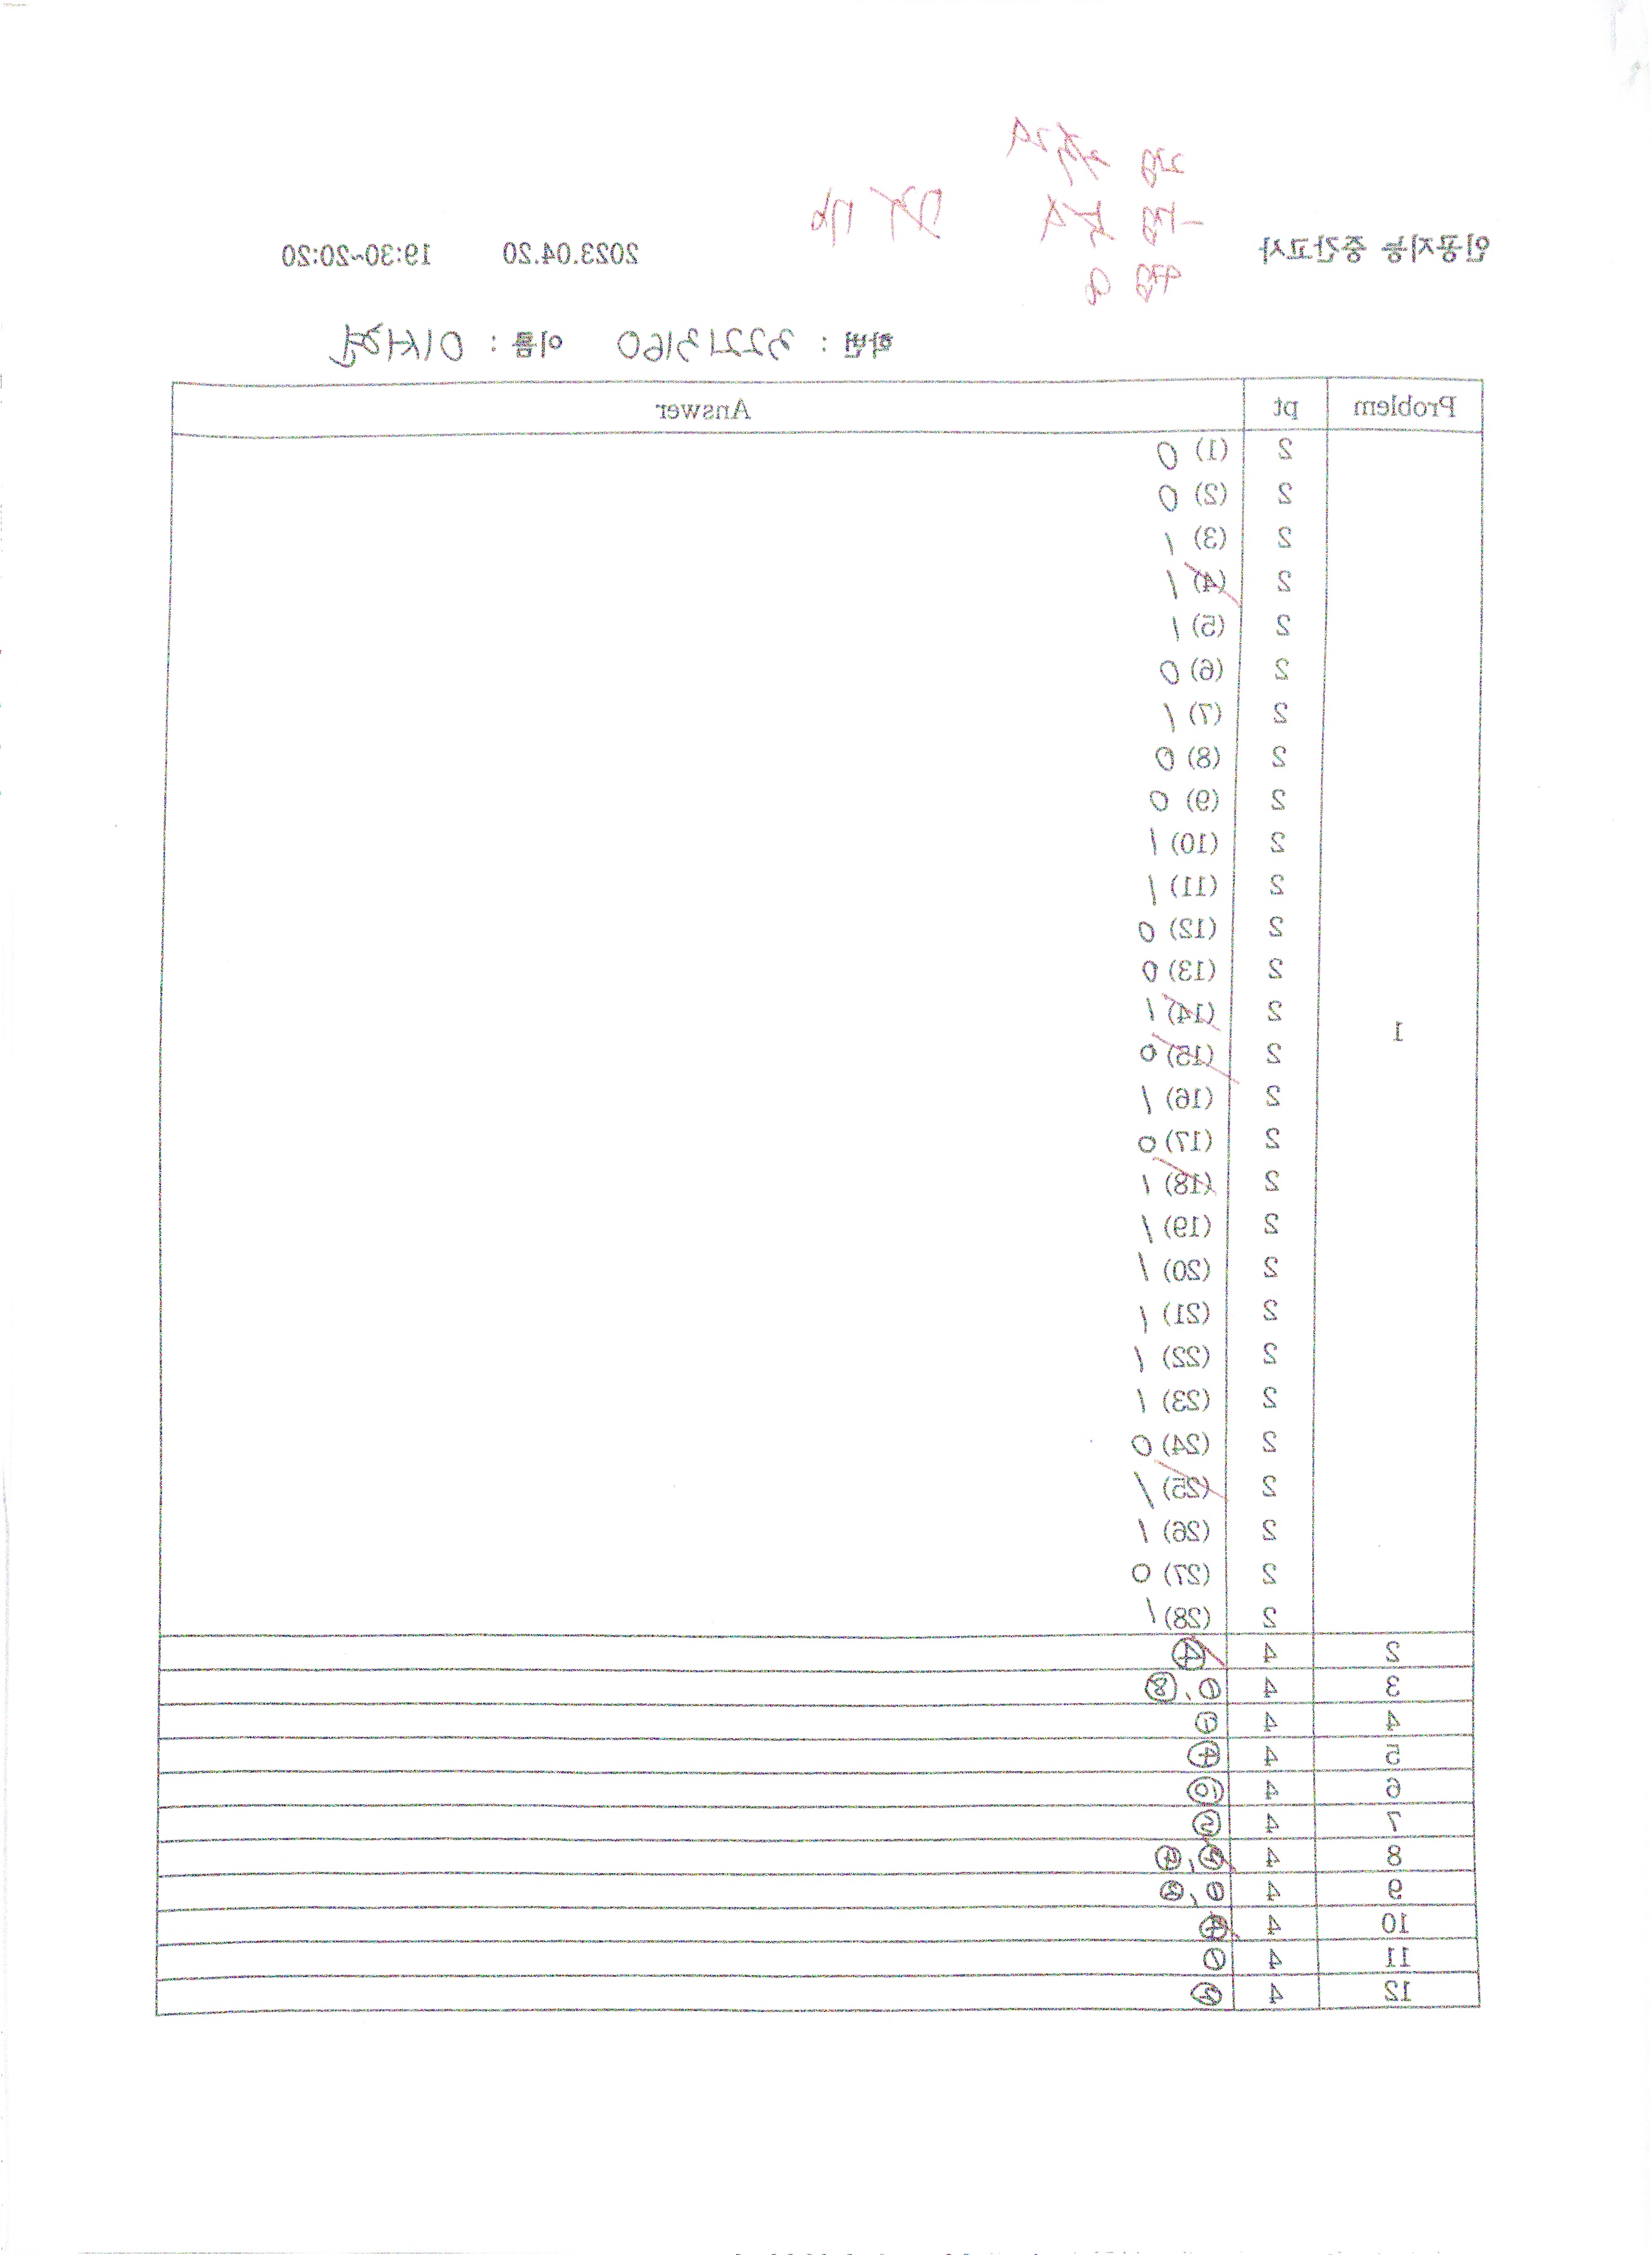 인공지능 중간고사 2023.04.20 19:30~20:20
학번 : 32213160 이름 :
Problem pt Answer
2 (1) 0
2 (2) 0
2 (3) 1
2 (4) 1
2 (5) 1
2 (6) 0
2 (7) 1
2 (8) 0
2 (9) 0
2 (10) 1
2 (11) 1
2 (12) 0
2 (13) 0
2 (14) 1
1 2 (15) 0
2 (16) 1
2 (17) 0
2 (18) 1
2 (19) 1
2 (20) 1
2 (21) 1
2 (22) 1
2 (23) 1
2 (24) 0
2 (25) 1
2 (26) 1
2 (27) 0
2 (28) 1
2 4 ④
3 4 ①,
4 4
5 4 ④
6 4
7 4
8 4
9 4 ①,
10 4 ④
11 4 ①
12 4